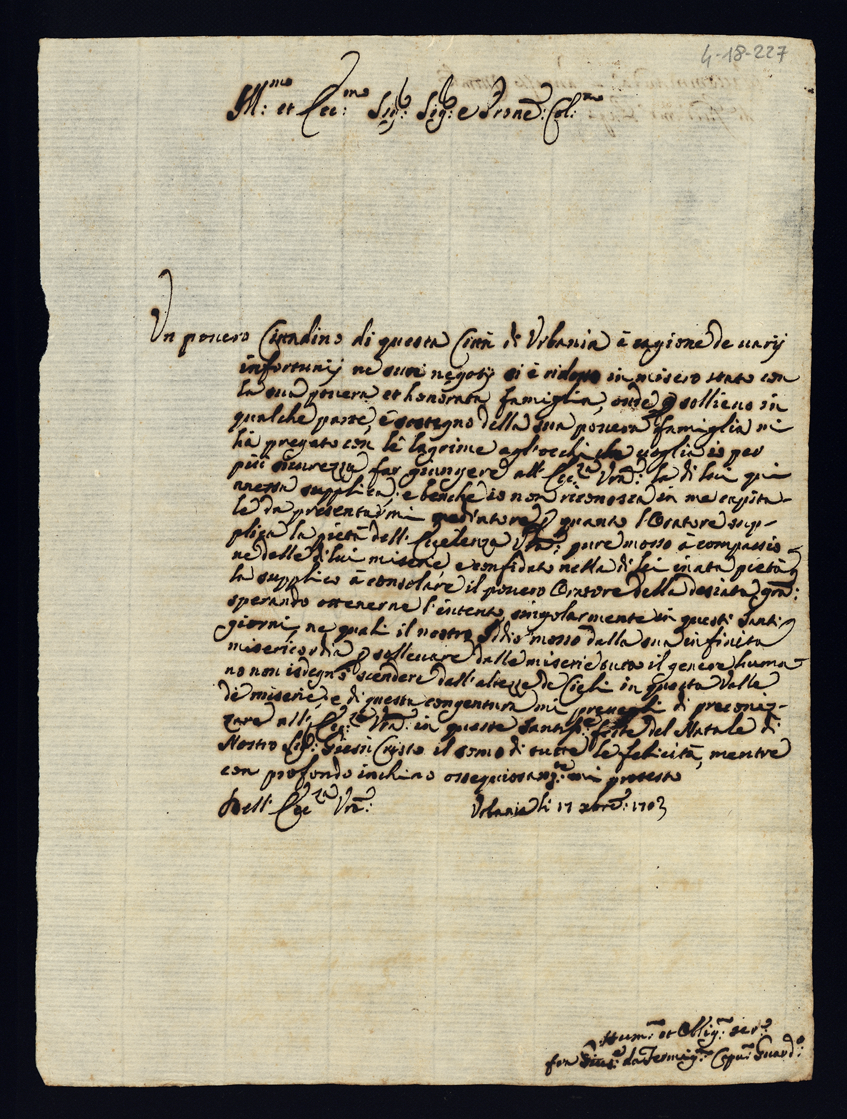 4-18-227
Ill:mo et Ecc:mo Sig:r Sig:r e Prone: Col:mo
Un povero Cittadino di questa Città di Urbania à cagione de varij
infortunij ne suoi negotij si è ridotto in misero stato con
la sua povera et honorata famiglia, onde p sollievo in
qualche parte, e sostegno della sua povera famiglia mi
hà pregato con le lagrime agl'occhi che voglia io per
più sicurezza far giungere all' Ecc:za Vra: la di lui qui
annessa supplica, e benche io non riconosca in me capita-
le da presentarmi mediatore p quanto l'Oratore sup-
plica la pietà dell' Eccelenza Vra: pure mosso à compassio-
ne delle di lui miserie, e confidato nella di lei inata pietà
la supplico à consolare il povero Oratore della desiata gra:
sperando ottenerne l'intento, singolarmente in questi santi
giorni, ne quali il nostro Iddio mosso dalla sua infinita
misericordia p sollevare dalle miserie tutto il genere huma-
no non isdegnò scendere dall'altezze de Cieli in questa valle
di miserie, e di questa congentura mi prevaglio di preconiz-
zare all' Ecc:za Vra: in queste santiss:e feste del Natale di
Nostro Sig:r Giesù Cristo il somo di tutte le felicità, mentre
con profondo inchino ossequiosam:te mi protesto
Dell' Ecc:za Vra: Urbania li 17 xbre: 1703
Hum:mo et Oblig:mo ser:re
fra da Capu:no Guard:o